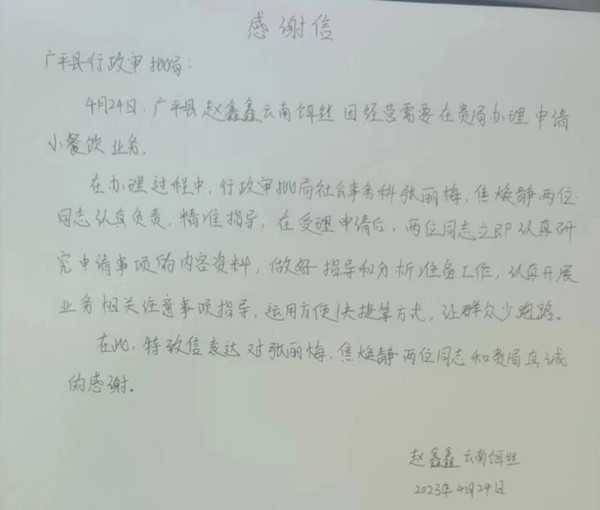 感谢信
广平县行政审批局:
4月24日,广平县赵鑫鑫云南饵丝因经营需要在贵局办理申请
小餐饮业务。
在办理过程中,行政审批局社会事务科张丽梅、焦焕静两位
同志认真负责,精准指导,在受理申请后,两位同志立即认真研
究申请事项的内容资料,做好指导和分析准备工作,认真开展
业务相关注意事项指导,运用方便快捷等方式,让群众少跑路。
在此,特致信表达对张丽梅、焦焕静两位同志和贵局真诚
的感谢。
赵鑫鑫云南饵丝
2023年4月24日